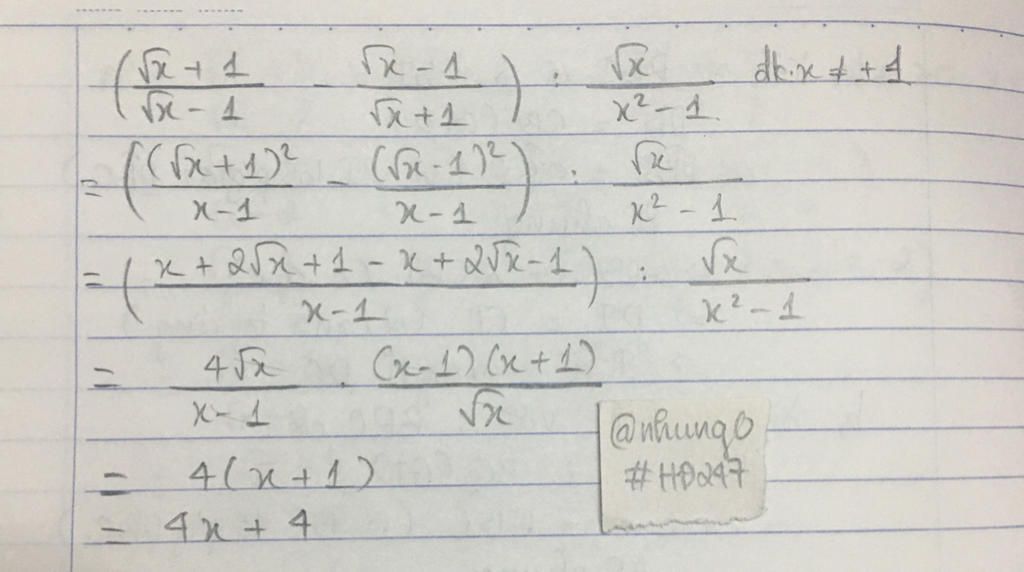 (\frac{\sqrt{x}+1}{\sqrt{x}-1} - \frac{\sqrt{x}-1}{\sqrt{x}+1}) : \frac{\sqrt{x}}{x^2-1} đk: x ≠ +1
= (\frac{(\sqrt{x}+1)^2}{x-1} - \frac{(\sqrt{x}-1)^2}{x-1}) : \frac{\sqrt{x}}{x^2-1}
= (\frac{x+2\sqrt{x}+1-x+2\sqrt{x}-1}{x-1}) : \frac{\sqrt{x}}{x^2-1}
= \frac{4\sqrt{x}}{x-1} . \frac{(x-1)(x+1)}{\sqrt{x}}
= 4(x+1)
= 4x+4
@nhung0
#HĐ247